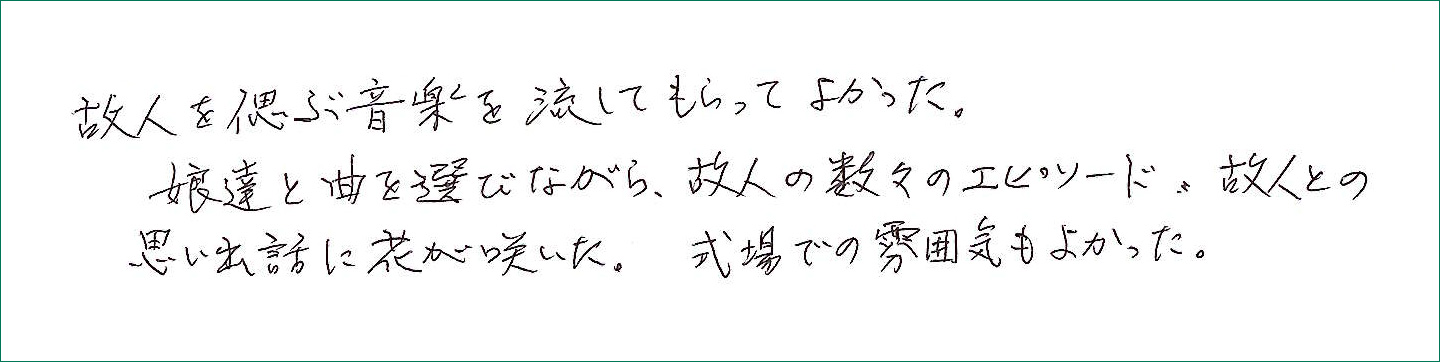 故人を偲ぶ音楽を流してもらってよかった。
娘達と曲を選びながら、故人の数々のエピソード、故人との
思い出話に花が咲いた。 式場での雰囲気もよかった。